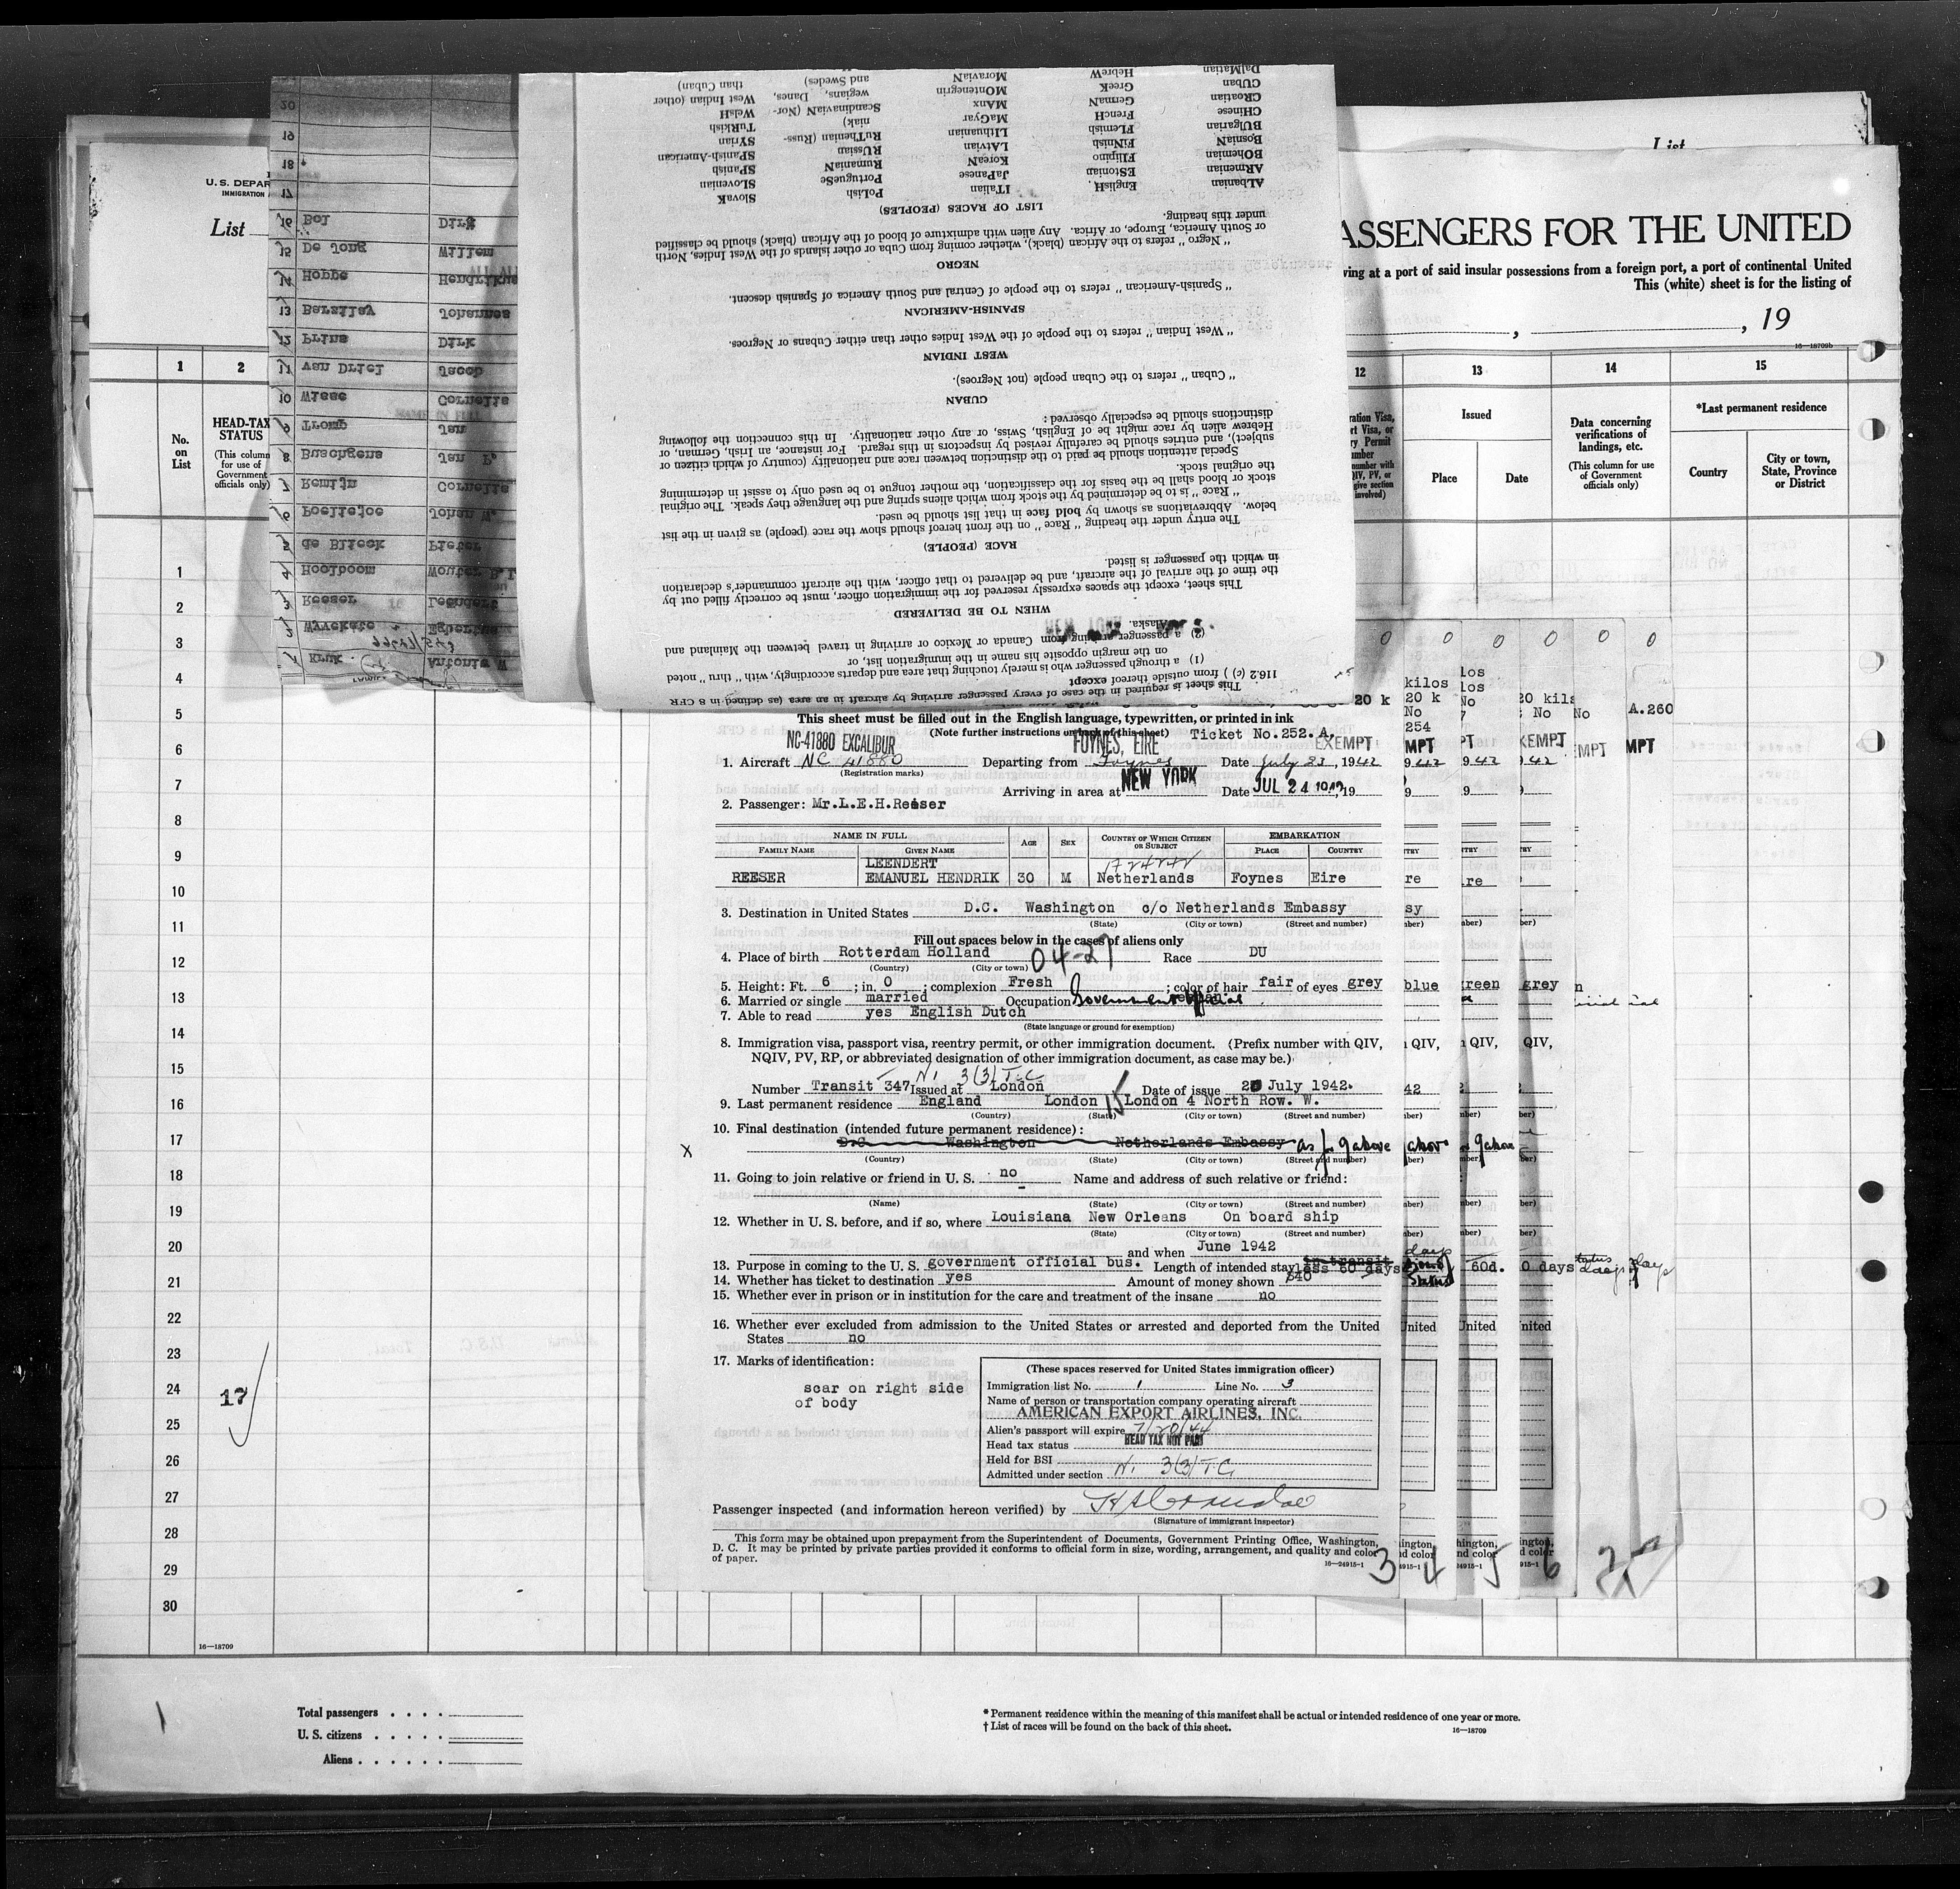 U. S. DEPAR
IMMIGRATION
List
List
ASSENGERS FOR THE UNITED
ving at a port of said insular possessions from a foreign port, a port of continental United
This (white) sheet is for the listing of
, , 19
16—18709b
1 2 12 13 14 15
No. on List
HEAD-TAX STATUS
(This column for use of Government officials only)
Issued
Place Date
Data concerning verifications of landings, etc.
(This column for use of Government officials only)
*Last permanent residence
Country
City or town, State, Province or District
20
19
18
17
16 Bol Dirk
15 De Jong Willem
14 Hoppe Hendrikus
13 Barsilay Johannes
12 Prins Dirk
11 van Driel Jacob
10 Wiese Cornelis
9 Tromp Jan
8 Buschgens Jan P.
7 Remijn Cornelis
6 Poellejoe Johan W.
5 de Blieck Pieter
4 Hoolboom Wouter
3 Reeser Leendert
2 Wyvekate Egbertus
1 Kruk Antonie W
This sheet is required in the case of every passenger arriving by aircraft in an area (as defined in 8 CFR
116.2 (c) ) from outside thereof except
(1) a through passenger who is merely touching that area and departs accordingly, with "thru" noted
on the margin opposite his name in the immigration list, or
(2) a passenger arriving from Canada or Mexico or arriving in travel between the Mainland and
Alaska.
WHEN TO BE DELIVERED
This sheet, except the spaces expressly reserved for the immigration officer, must be correctly filled out by
the time of the arrival of the aircraft, and be delivered to that officer, with the aircraft commander's declaration
in which the passenger is listed.
RACE (PEOPLE)
The entry under the heading "Race" on the front hereof should show the race (people) as given in the list
below. Abbreviations as shown by bold face in that list should be used.
"Race" is to be determined by the stock from which aliens spring and the language they speak. The original
stock or blood shall be the basis for the classification, the mother tongue to be used only to assist in determining
the original stock.
Special attention should be paid to the distinction between race and nationality (country of which citizen or
subject), and entries should be carefully revised by inspectors in this regard. For instance, an Irish, German, or
Hebrew alien by race might be of English, Swiss, or any other nationality. In this connection the following
distinctions should be especially observed:
CUBAN
"Cuban" refers to the Cuban people (not Negroes).
WEST INDIAN
"West Indian" refers to the people of the West Indies other than either Cubans or Negroes.
SPANISH-AMERICAN
"Spanish-American" refers to the people of Central and South America of Spanish descent.
NEGRO
"Negro" refers to the African (black), whether coming from Cuba or other islands of the West Indies, North
or South America, Europe, or Africa. Any alien with admixture of blood of the African (black) should be classified
under this heading.
LIST OF RACES (PEOPLES)
Albanian EnglisH ITalian PoLish SlovaK
ARmenian EStonian JaPanese PortuguesE SLovenian
BOhemian FIlipino KoreaN RumaniaN SPaniSH
BosniaN FiNnish LAtvian RUssian SPanish-American
BUlgarian FLemish LIthuanian RuThenian (Russ- SYrian
CHinese FRench MaGyar niak) TuRkish
CRoatian GermaN MAnx ScandinaviaN (Nor- WelsH
CUban GreeK MOntenegrin wegians, Danes, West Indian (other
DalMatian HebreW MoraviaN and Swedes) than Cuban)
This sheet must be filled out in the English language, typewritten, or printed in ink
(Note further instructions on back of this sheet) Ticket No.252. A.
NC-41880 EXCALIBUR FOYNES, EIRE EXEMPT
1. Aircraft NC 41880 Departing from Foynes Date July 23, 1942
(Registration marks)
Arriving in area at NEW YORK Date JUL 24 1942, 19
2. Passenger: Mr.L.E.H.Reeser
NAME IN FULL AGE SEX COUNTRY OF WHICH CITIZEN OR SUBJECT EMBARKATION
FAMILY NAME GIVEN NAME PLACE COUNTRY
LEENDERT
REESER EMANUEL HENDRIK 30 M Netherlands Foynes Eire
3. Destination in United States D.C. Washington c/o Netherlands Embassy
(State) (City or town) (Street and number)
Fill out spaces below in the cases of aliens only
4. Place of birth Rotterdam Holland 04-27 Race DU
(Country) (City or town)
5. Height: Ft. 6 ; in. 0 ; complexion Fresh ; color of hair fair of eyes grey
6. Married or single married Occupation Government official
7. Able to read yes English Dutch
(State language or ground for exemption)
8. Immigration visa, passport visa, reentry permit, or other immigration document. (Prefix number with QIV,
NQIV, PV, RP, or abbreviated designation of other immigration document, as case may be.)
3(3) T.C
Number Transit 347 Issued at London Date of issue 2 July 1942.
9. Last permanent residence England London London 4 North Row. W.
(Country) (State) (City or town) (Street and number)
10. Final destination (intended future permanent residence):
D.C. Washington Netherlands Embassy as for 9 above
(Country) (State) (City or town) (Street and number)
11. Going to join relative or friend in U. S. no Name and address of such relative or friend:
(Name) (State) (City or town) (Street and number)
12. Whether in U. S. before, and if so, where Louisiana New Orleans On board ship
(State) (City or town) (Street and number)
and when June 1942
in transit
13. Purpose in coming to the U. S. government official bus. Length of intended stay less 60 days
14. Whether has ticket to destination yes Amount of money shown $40
15. Whether ever in prison or in institution for the care and treatment of the insane no
16. Whether ever excluded from admission to the United States or arrested and deported from the United
States no
17. Marks of identification:
scar on right side
of body
(These spaces reserved for United States immigration officer)
Immigration list No. 1 Line No. 3
Name of person or transportation company operating aircraft
AMERICAN EXPORT AIRLINES, INC.
Alien's passport will expire 7/20/44
Head tax status HEAD TAX NOT PAID
Held for BSI
Admitted under section 3(3) T.C.
Passenger inspected (and information hereon verified) by
(Signature of immigrant inspector)
This form may be obtained upon prepayment from the Superintendent of Documents, Government Printing Office, Washington,
D. C. It may be printed by private parties provided it conforms to official form in size, wording, arrangement, and quality and color
of paper.
16—24915-1
3 4 5 6
1
2
3
4
5
6
7
8
9
10
11
12
13
14
15
16
17
18
19
20
21
22
23
24
25
26
27
28
29
30
17
16—18709
Total passengers . . . .
U. S. citizens . . . . .
Aliens . . . . . .
* Permanent residence within the meaning of this manifest shall be actual or intended residence of one year or more.
† List of races will be found on the back of this sheet.
16—18709